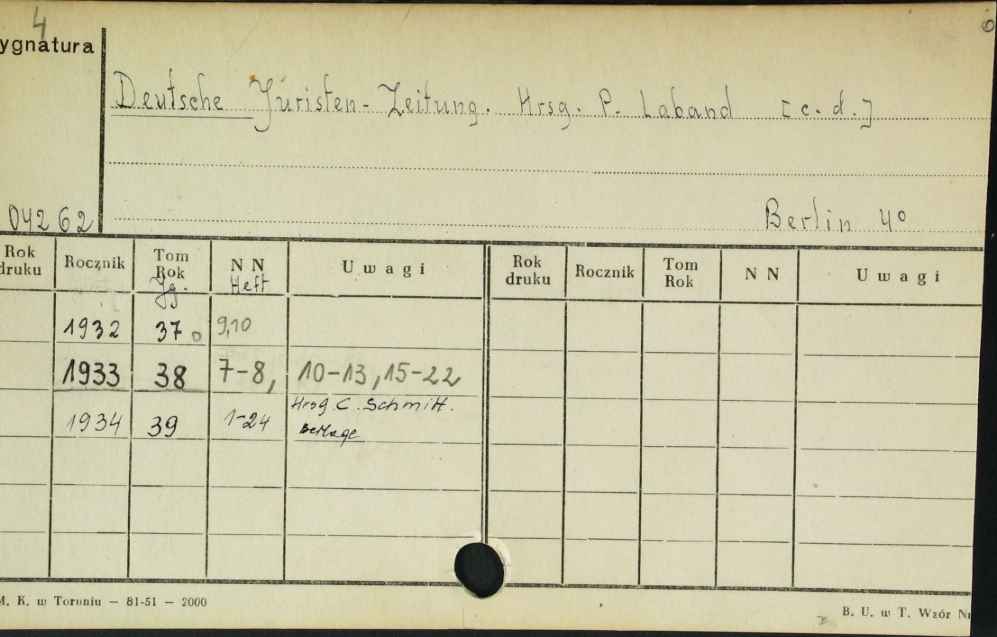 4
ygnatura
Deutsche Juristen-Zeitung. Hrsg. P. Laband [c.d.]
04262
Berlin 4°
Rok druku Rocznik Tom Rok N N U w a g i Rok druku Rocznik Tom Rok N N U w a g i
Jg. Heft
1932 37 9,10
1933 38 7-8, 10-13, 15-22
1934 39 1-24 Hrsg. C. Schmitt.
Beilage
M. K. w Toruniu — 81-51 — 2000
B. U. w T. Wzór Nr